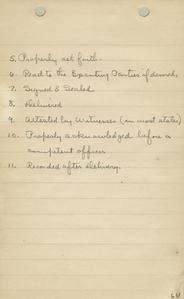 5. Properly set forth.
6. Read to the Executing Parties if desired.
7. Signed & Sealed
8. Delivered
9. Attested by Witnesses (in most states)
10. Properly acknowledged before a
competent officer
11. Recorded after Delivery.